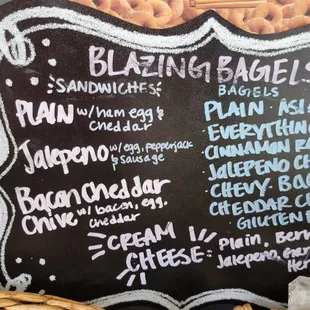 BLAZING BAGELS
SANDWICHES
PLAIN w/ ham egg &
cheddar
Jalepeno w/ egg, pepperjack
& sausage
Bacon Cheddar
Chive w/ bacon, egg,
cheddar
BAGELS
PLAIN
EVERYTHIN
CINNAMON
JALEPENO
CHEVY
CHEDDAR
GLUTEN
CREAM
CHEESE: Plain,
Jalepeno,